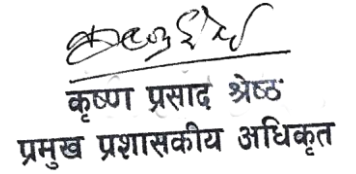 कृष्ण प्रसाद श्रेष्ठ
प्रमुख प्रशासकीय अधिकृत